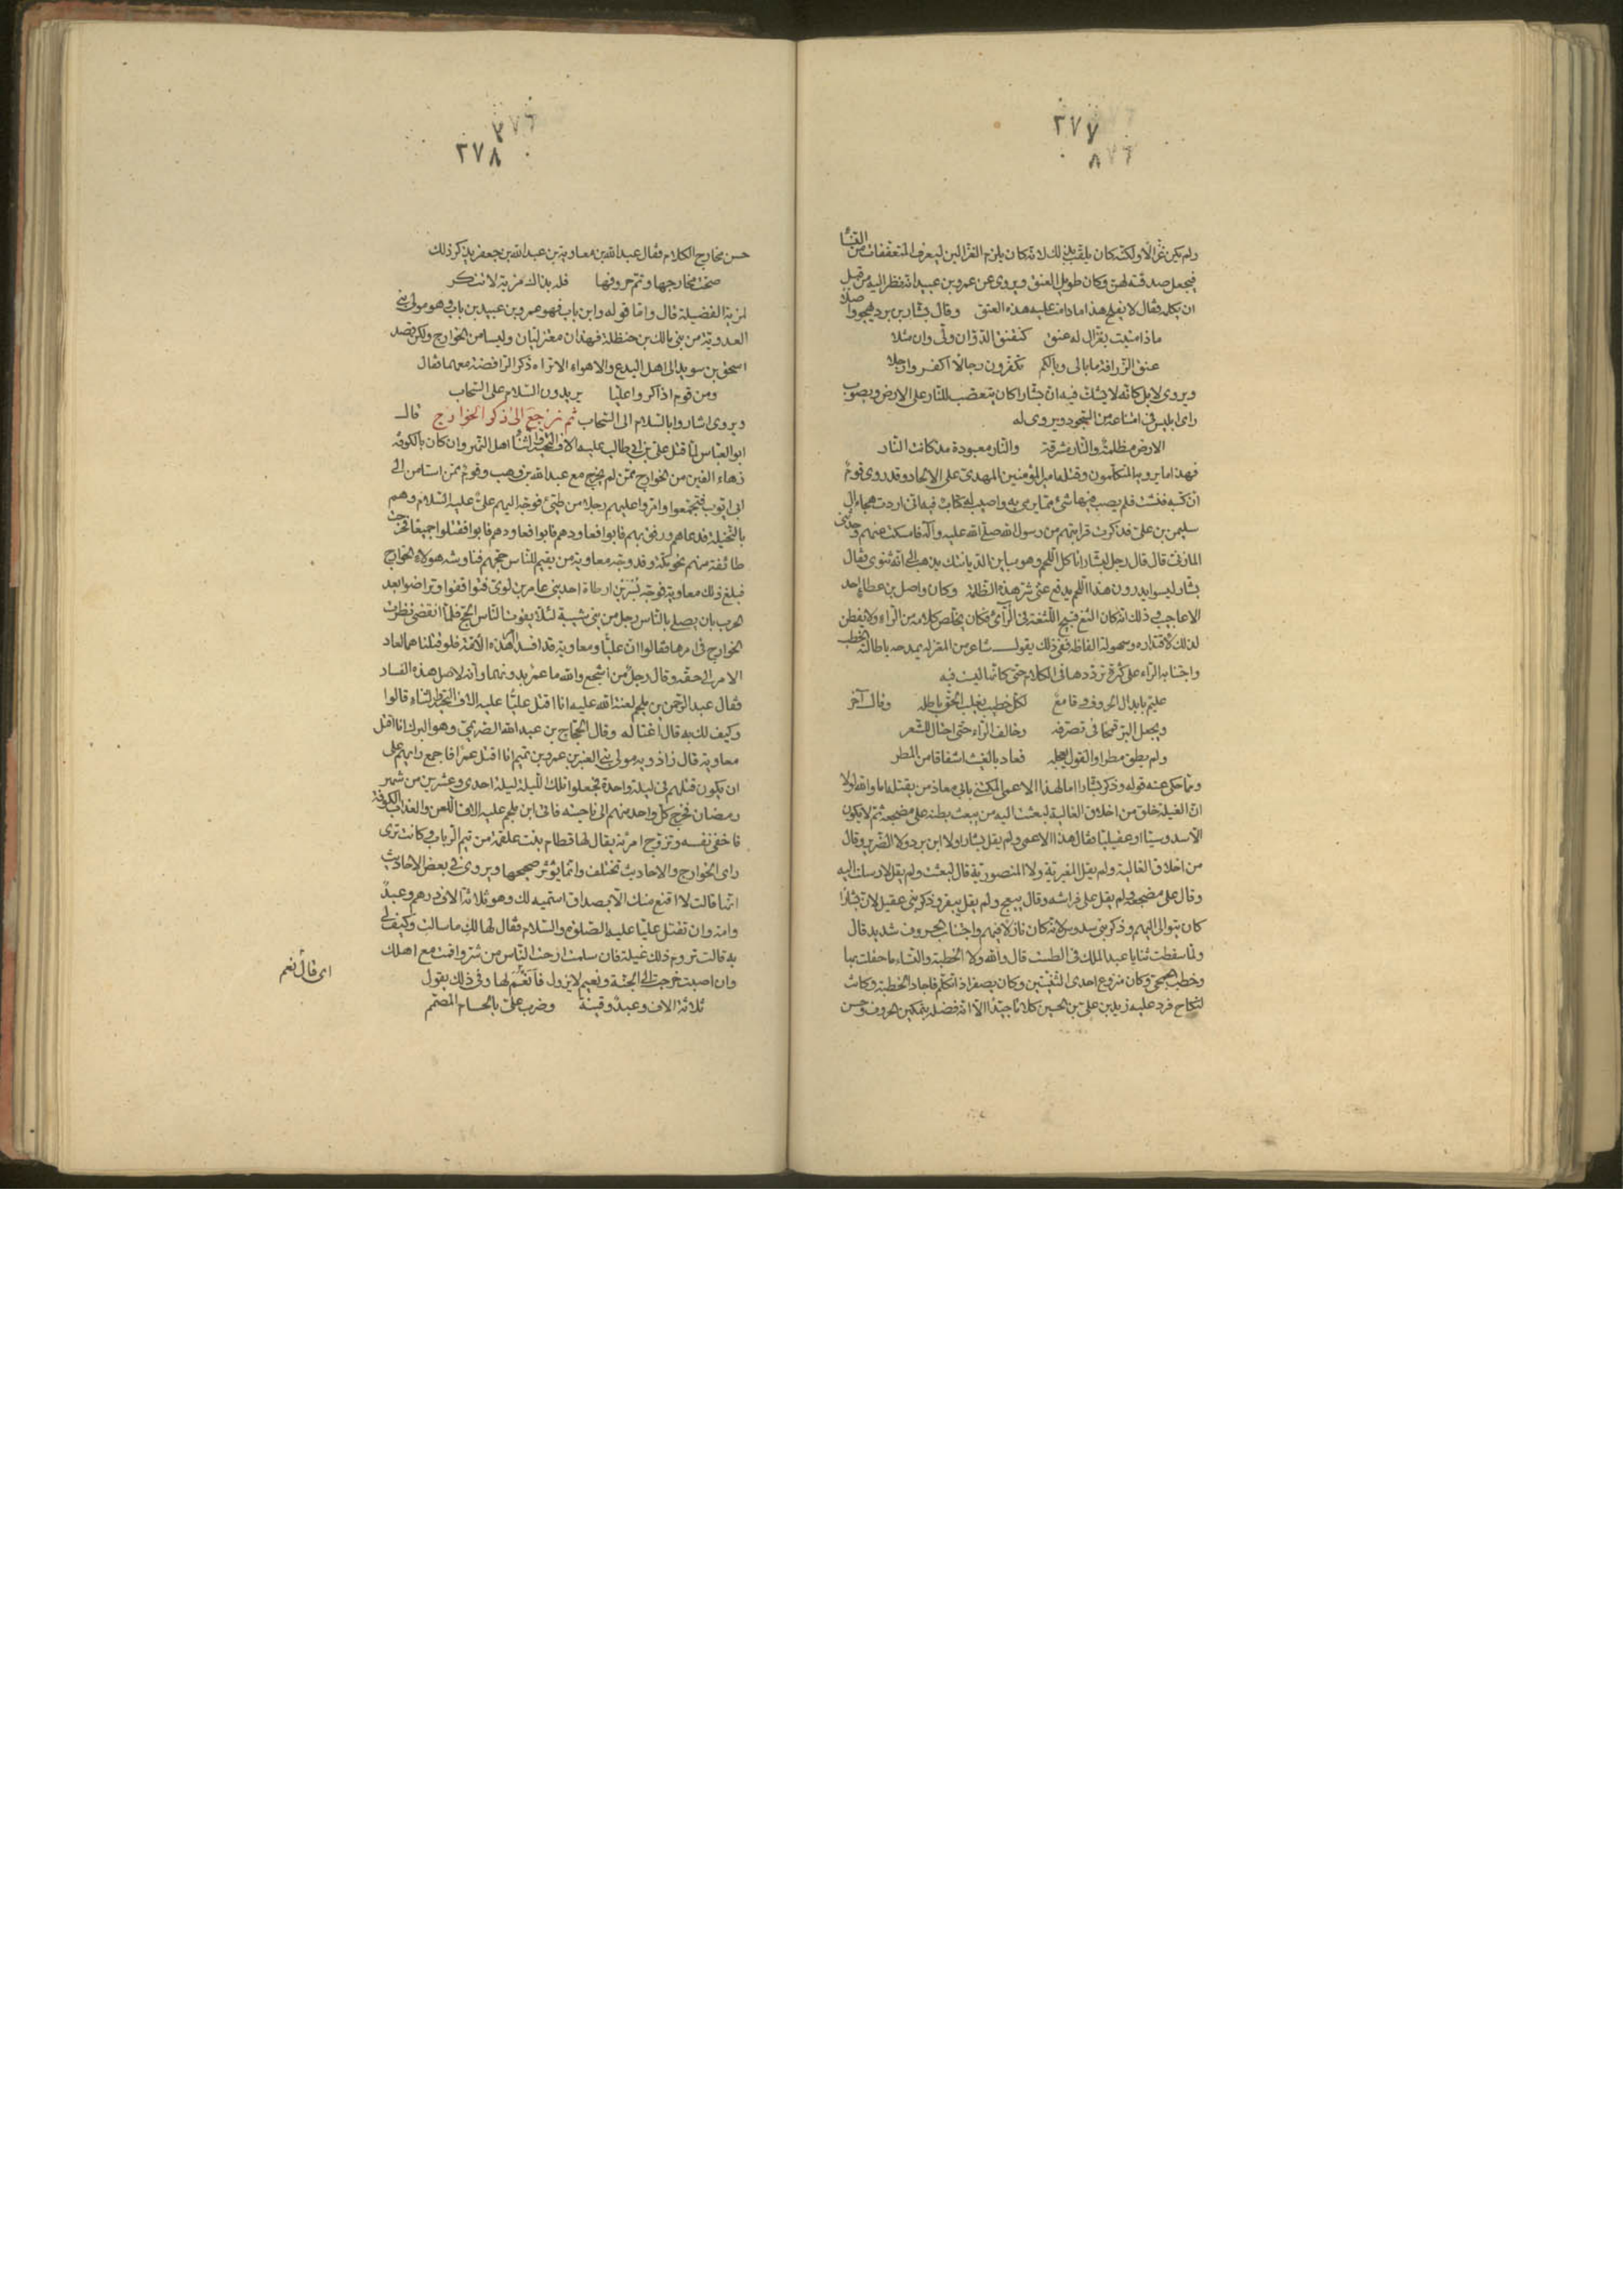 ٢٧٧
ولم يكن غزّالا ولكنّه كان يلقّب بذلك لانه كان يلزم الغزّالين ليعرف المتعففات من النسا
فيجعل صدقته لهنّ وكان طويل العنق ويروى عن عمرو بن عبيد انه نظر اليه من قبل
ان يكلمه فقال لا يفلح هذا ما دامت عليه هذه العنق وقال بشار بن برد يهجو واصلا
ماذا منيت بغزّال له عنق كنقنق الدّوّ ان ولّى وان مثلا
عنق الزّرافة ما بالى وبالكم تكفّرون رجالا اكفروا رجلا
ويروى لا بل كانه لا يشك فيه ان بشارا كان يتعصب للنّار على الارض ويصوب
راى ابليس فى امتناعه من السّجود ويروى له
الارض مظلمة والنّار مشرقة والنار معبودة مذ كانت النّار
فهذا ما يرويه المتكلّمون وقتله امير المؤمنين المهدى على الالحاد وقد روى قوم
ان كتبه فتشت فلم يصب فيها شئ مما يرمى به واصيب له كتاب فيه انى اردت هجاء ال
سليمن بن على فذكرت قرابتهم من رسول الله صلى الله عليه وآله فامسكت عنهم وحدثنى
المازنى قال قال رجل لبشار اتاكل اللحم وهو مباين لديانتك يذهب الى انه ثنوى فقال
بشار ليسوا يدرون هذا اللحم يدفع عنى شرّ هذه الظّلمة وكان واصل بن عطا احد
الاعاجيب وذلك انه كان الثغ قبيح اللّثغة فى الرّاء فكان يخلّص كلامه من الرّاء ولا يفطن
لذلك لاقتداره وسهولة الفاظه ففى ذلك يقول شاعر من المعتزله يمدحه باطالته الخطب
واجتنابه الرّاء على كثرة تردّدها فى الكلام حتى كانها ليست فيه
عليم بابدال الحروف وقامع لكلّ خطيب يغلب الحقّ باطله وقال آخر
ويجعل البرّ قمحا فى تصرفه وخالف الرّاء حتى احتال للشّعر
ولم يطق مطرا والقول يعجله فعاد بالغيث اشفاقا من المطر
ومما حكى عنه قوله وذكر بشارا اما لهذا الاعمى المكتنى بابى معاذ من يقتله اما والله لولا
ان الغيلة خلق من اخلاق الغالية لبعثت اليه من يبعج بطنه على مضجعه ثم لا يكون
الا سدوسيا او عقيليا فقال هذا الاعمى ولم يقل بشارا ولا ابن برد ولا الضّرير وقال
من اخلاق الغالية ولم يقل المغيرية ولا المنصورية قال لبعثت ولم يقل لارسلت اليه
وقال على مضجعه ولم يقل على فراشه وقال يبعج ولم يقل يبقر وذكر بنى عقيل لان بشارا
كان يتوالى اليهم وذكر بنى سدوس لانه كان نازلا فيهم واجتناب الحروف شديد قال
ولما سقطت ثنايا عبد الملك فى الطست قال والله لولا الخطبة والنساء ما حفلت بها
وخطب الجمحى وكان منزوع احدى الثنيتين وكان يصفر اذا تكلم فاجاد الخطبة وكانت
لنكاح فرد عليه زيد بن على بن الحسين كلاما جيدا الا انه فضله بتمكين الحروف وحسن
٢٧٨
حسن مخارج الكلام فقال عبد الله بن معاوية بن عبد الله بن جعفر يذكر ذلك
صحّت مخارجها وتمّ حروفها فله بذاك مزية لا تنكر
المزية الفضيلة قال واما قوله وابن باب فهو عمرو بن عبيد بن باب وهو مولى بنى
العدوية من بنى مالك بن حنظلة فهذان معتزليان وليسا من الخوارج ولكن قصد
اسحق بن سويد الى اهل البدع والاهواء الا تراه ذكر الرّافضة معهما فقال
ومن قوم اذا ذكروا عليّا يردون السّلام على السّحاب
ويروى اشاروا بالسلام الى السّحاب ثم نرجع الى ذكر الخوارج قال
ابو العباس لما قتل على بن ابى طالب عليه الاف التحية والثناء اهل النهر وان كان بالكوفة
زهاء الفين من الخوارج ممّن لم يخرج مع عبد الله بن وهب وقوم ممن استامن الى
ابى ايّوب فتجمّعوا وامّروا عليهم رجلا من طيئ فوجّه اليهم على عليه السّلام وهم
بالنّخيلة فدعاهم ورفق بهم فابوا فعاودهم فابوا فعاودهم فابوا فقتلوا جميعا فخرجت
طائفة منهم نحو مكّة وقد وجّه معاوية من يقيم للنّاس حجّهم فناوشه هولاء الخوارج
فبلغ ذلك معاوية فوجّه بسر بن ارطاة احد بنى عامر بن لوى فتواقفوا وتراضوا بعد
الحرب بان يصلى بالنّاس رجل من بنى شيبة لئلا يفوت النّاس الحج فلمّا انقضى نظرت
الخوارج فى امرها فقالوا ان عليّا ومعاوية قد افسدا هذه الامّة فلو قتلناهما لعاد
الامر الى حقه وقال رجل من اشجع والله ما عمرو بدونهما وانه لاصل هذا الفساد
فقال عبد الرّحمن بن ملجم لعنة الله عليه انا اقتل عليّا عليه الاف التحية والثناء قالوا
وكيف لك به قال اغتاله وقال الحجّاج بن عبد الله الصريمى وهو البرك انا اقتل
معاوية قال زاذويه مولى بنى العنبر بن عمرو بن تميم انا اقتل عمرا فاجمع رايهم على
ان يكون قتلهم فى ليلة واحدة فجعلوا تلك اللّيلة ليلة احدى وعشرين من شهر
رمضان فخرج كلّ واحد منهم الى ناحيته فاتى ابن ملجم عليه الاف اللعن والعذاب الكوفة
فاخفى نفسه وتزوّج امرئة يقال لها قطام بنت علقمة من تيم الرّباب وكانت ترى
راى الخوارج والاحاديث تختلف وانما يؤثر صحيحها ويروى فى بعض الاحاديث
انها قالت لا اقنع منك الا بصداق استميه لك وهو ثلاثة الاف درهم وعبد
وامة وان تقتل عليّا عليه الصّلوة والسّلام فقال لها لك ما سالت وكيف لى
به قالت تروم ذلك غيلة فان سلمت ارحت النّاس من شرّ واقمت مع اهلك
وان اصبت خرجت الى الجنّة ونعيم لا يزول فانعم لها وفى ذلك يقول
ثلاثة الاف وعبد وقينة وضرب علىّ بالحسام المصمّم
اى قال نعم